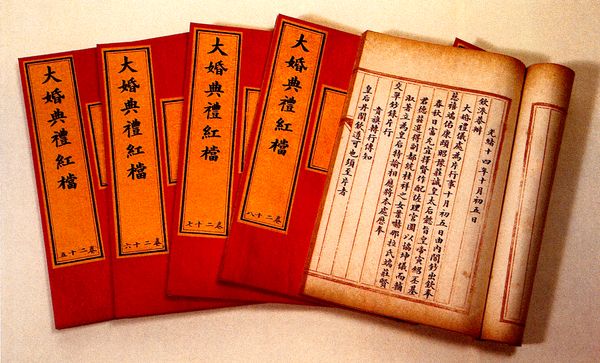 大婚典禮紅檔
卷二十五
大婚典禮紅檔
卷二十六
大婚典禮紅檔
卷二十七
大婚典禮紅檔
卷二十八
光緒十四年十月初五日
欽派恭辦
大婚禮儀處為片行事十月初五日由內閣鈔出欽奉
慈禧端佑康頤昭豫莊誠皇太后懿旨皇帝寅紹丕基
春秋日富允宜擇賢作配佐理宮闈以協坤儀而輔
君德茲選得副都統桂祥之女葉赫那拉氏端莊賢
淑著立為皇后特諭相應將本處恭奉
交單鈔錄片行
貴旗轉行傳知
皇后丹闡欽遵可也須至片者